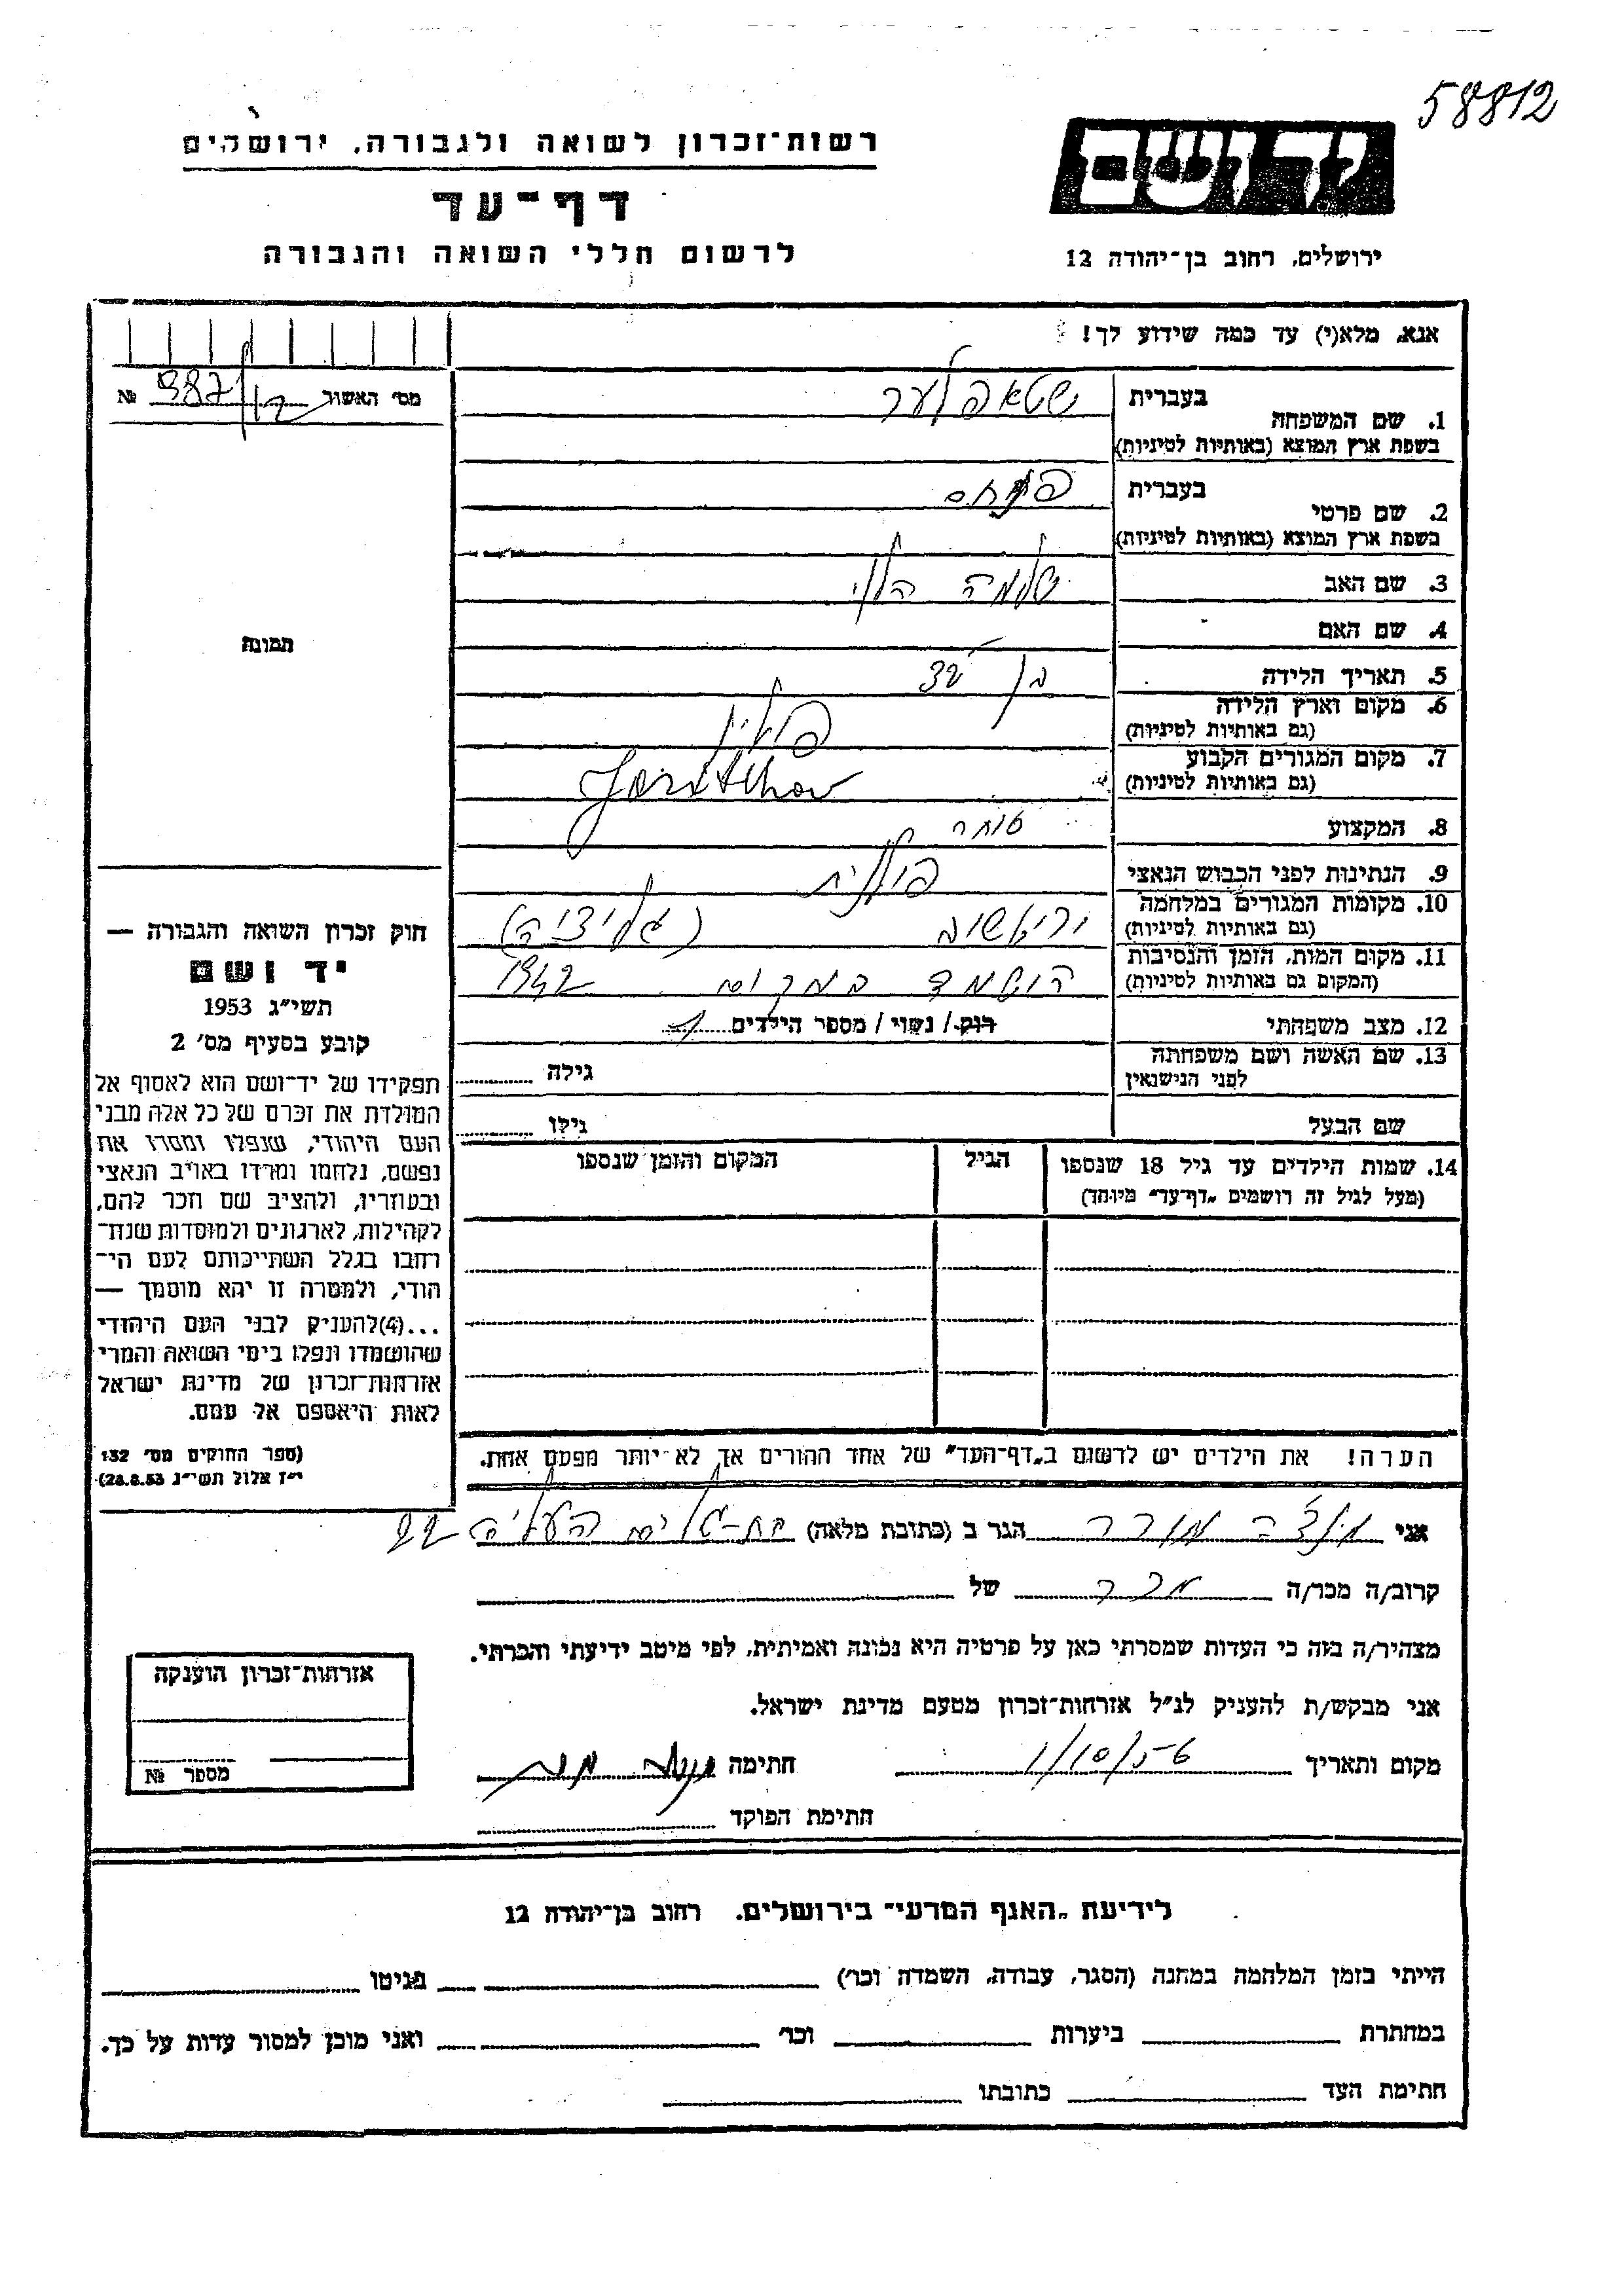 58812
יד ושם
רשות־זכרון לשואה ולגבורה, ירושלים
דף־עד
לרשום חללי השואה והגבורה
ירושלים, רחוב בן־יהודה 12
אנא, מלא(י) עד כמה שידוע לך!
מס׳ האשור 987/12 №
בעברית שטאפלער
1. שם המשפחה
בשפת ארץ המוצא (באותיות לטיניות)
בעברית פנחס
2. שם פרטי
בשפת ארץ המוצא (באותיות לטיניות)
3. שם האב שלמה הלוי
4. שם האם
תמונה
5. תאריך הלידה בן 32
6. מקום וארץ הלידה פולין
(גם באותיות לטיניות)
7. מקום המגורים הקבוע
(גם באותיות לטיניות)
8. המקצוע סוחר
9. הנתינות לפני הכבוש הנאצי פולנית
10. מקומות המגורים במלחמה (גליציה)
(גם באותיות לטיניות)
11. מקום המות, הזמן והנסיבות הושמד במקום 1942
(המקום גם באותיות לטיניות)
12. מצב משפחתי רוק / נשוי / מספר הילדים
13. שם האשה ושם משפחתה
לפני הנישואין גילה
שם הבעל גילו
14. שמות הילדים עד גיל 18 שנספו הגיל המקום והזמן שנספו
(מעל לגיל זה רושמים „דף־עד״ מיוחד)
חוק זכרון השואה והגבורה —
יד ושם
תשי״ג 1953
קובע בסעיף מס׳ 2
תפקידו של יד־ושם הוא לאסוף אל
המולדת את זכרם של כל אלה מבני
העם היהודי, שנפלו ומסרו את
נפשם, נלחמו ומרדו באויב הנאצי
ובעוזריו, ולהציב שם וזכר להם,
לקהילות, לארגונים ולמוסדות שנח־
רבו בגלל השתייכותם לעם הי־
הודי, ולמטרה זו יהא מוסמך —
...(4)להעניק לבני העם היהודי
שהושמדו ונפלו בימי השואה והמרי
אזרחות־זכרון של מדינת ישראל
לאות היאספם אל עמם.
(ספר החוקים מס׳ 132
י״ז אלול תשי״ג 28.8.53)
הערה! את הילדים יש לרשום ב„דף־העד״ של אחד ההורים אך לא יותר מפעם אחת.
אני הגר ב (כתובת מלאה) בת-גלים העליה 22
קרוב/ה מכר/ה מכר של
מצהיר/ה בזה כי העדות שמסרתי כאן על פרטיה היא נכונה ואמיתית, לפי מיטב ידיעתי והכרתי.
אני מבקש/ת להעניק לנ״ל אזרחות־זכרון מטעם מדינת ישראל.
מקום ותאריך 1/10/56 חתימה
חתימת הפוקד
אזרחות־זכרון הוענקה
מספר №
לידיעת „האגף המדעי״ בירושלים. רחוב בן־יהודה 12
הייתי בזמן המלחמה במחנה (הסגר, עבודה, השמדה וכר׳) בגיטו
במחתרת ביערות וכר׳ ואני מוכן למסור עדות על כך.
חתימת העד כתובתו